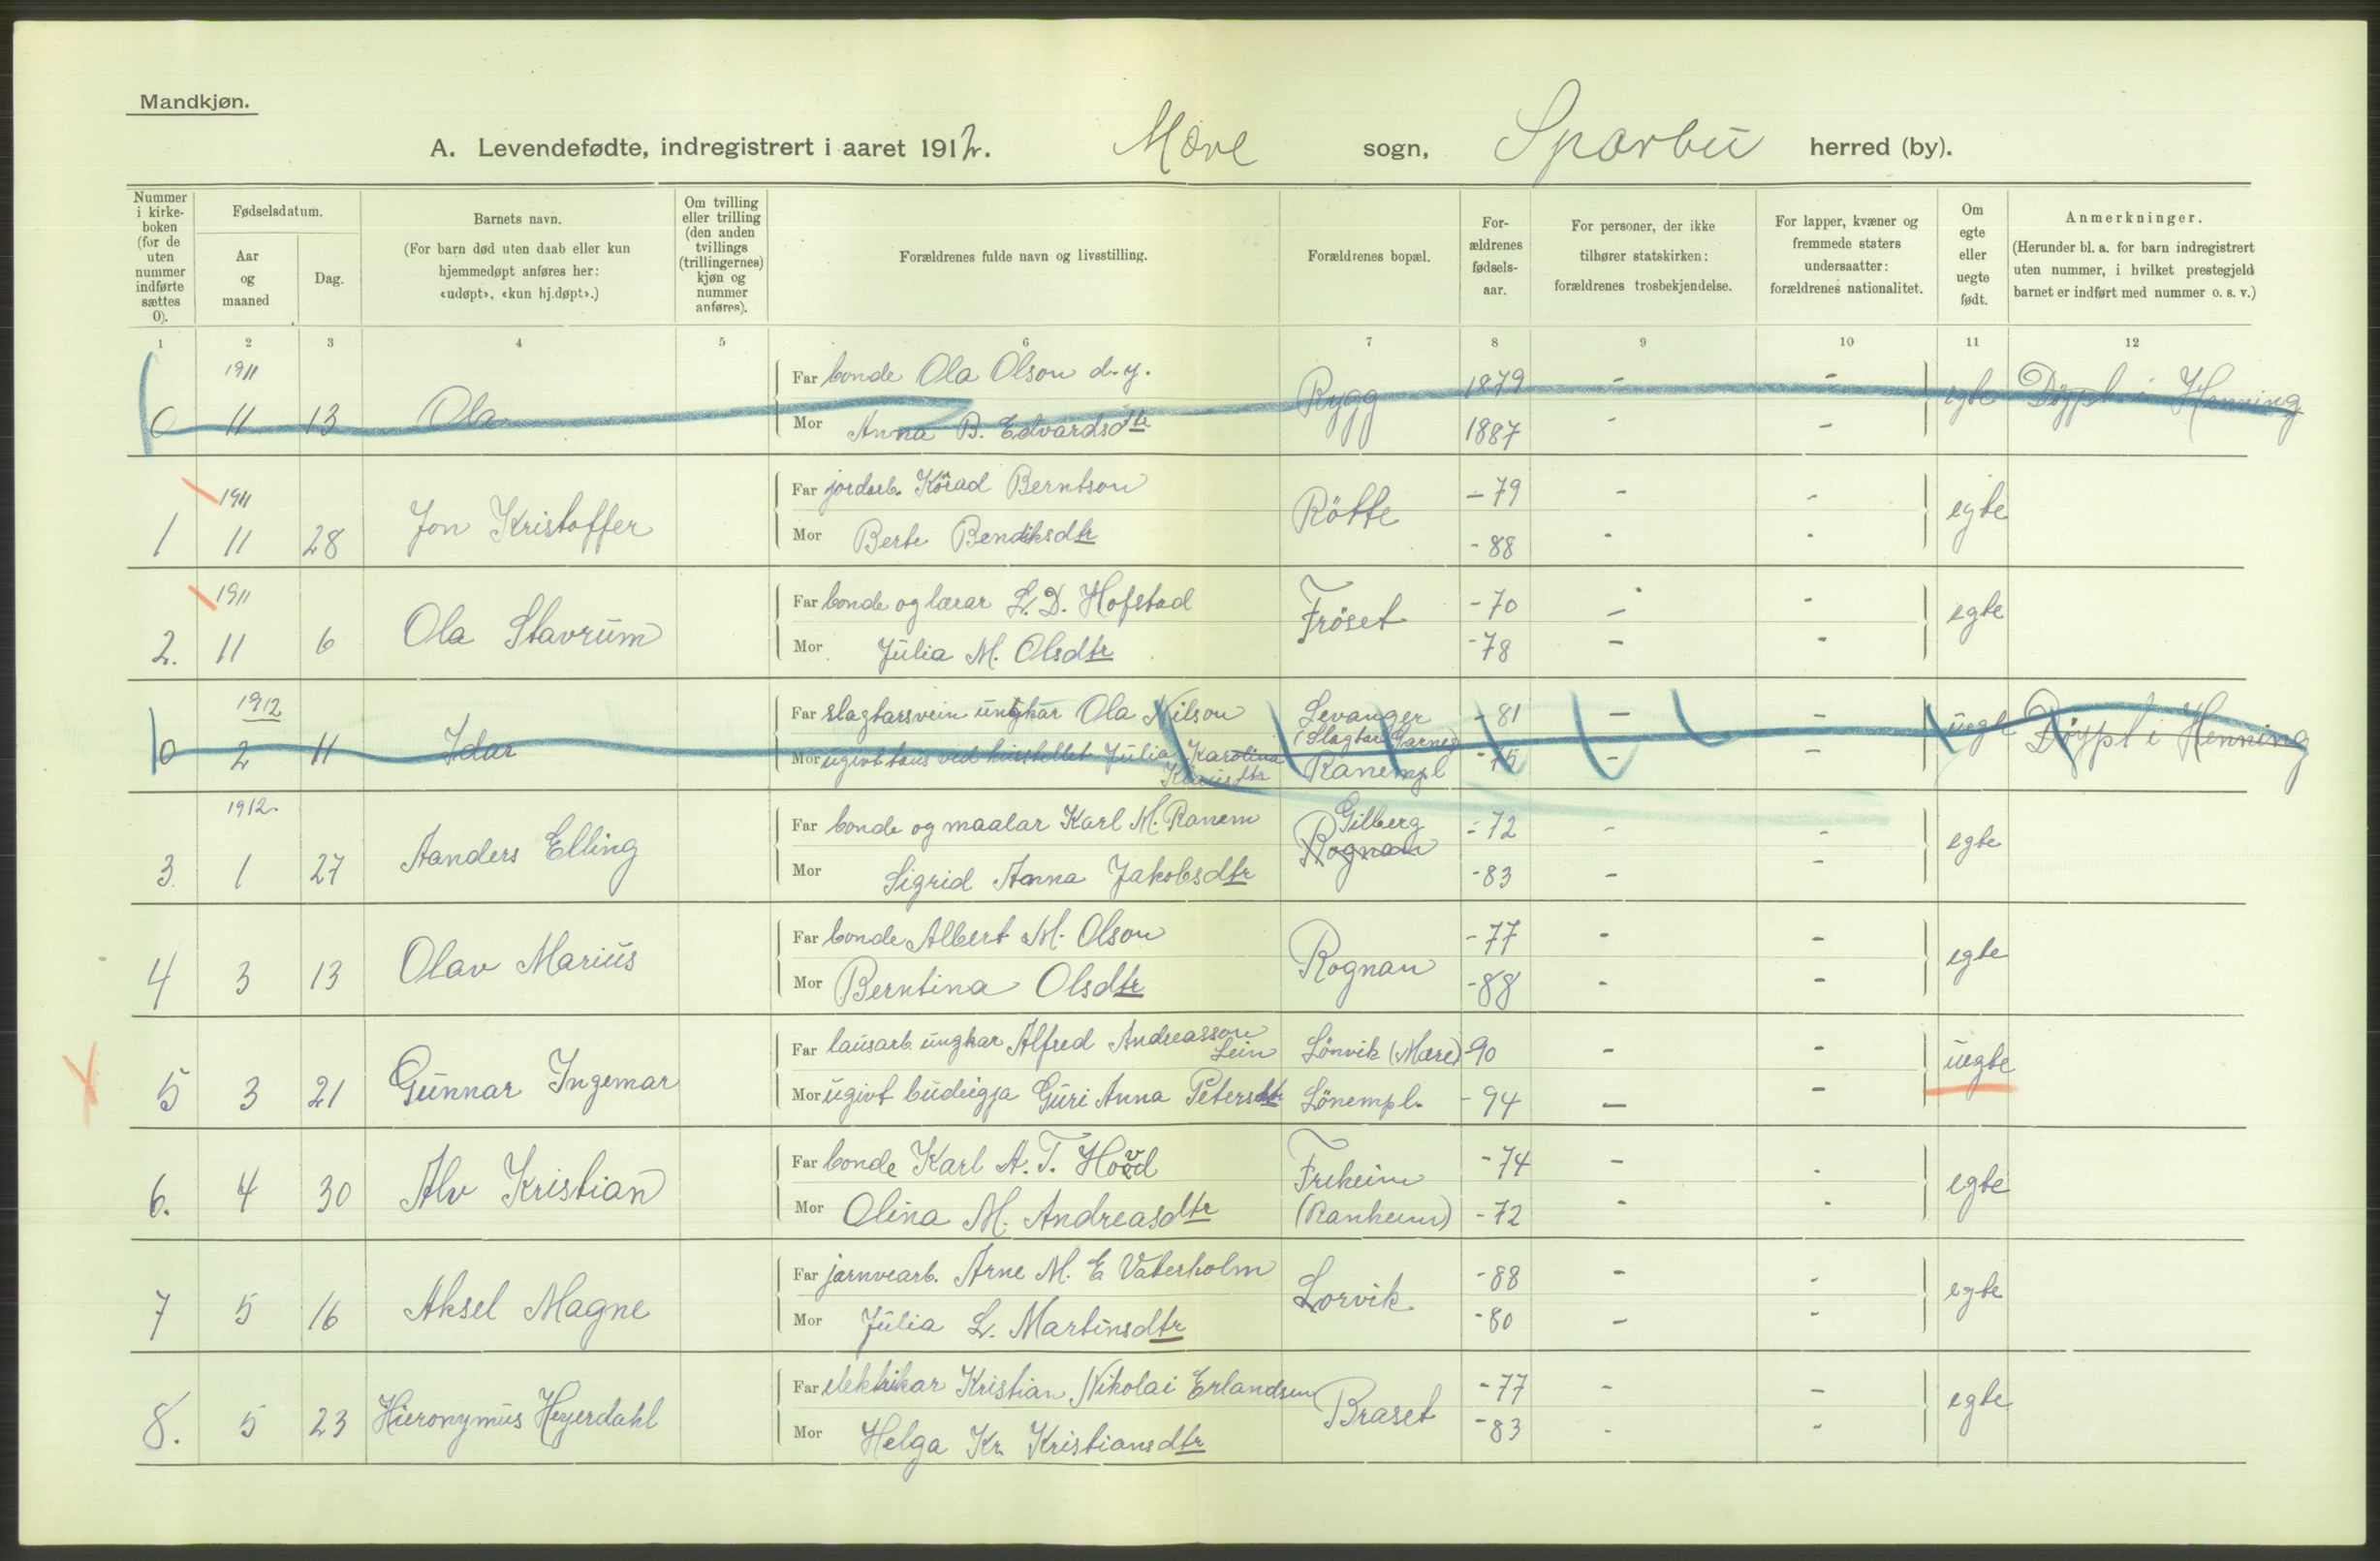 Mandkjøn.
A. Levendefødte, indregistrert i aaret 1912. Mære sogn, Sparbu herred (by).
Nummer i kirke- boken (for de uten nummer indførte sættes 0).
Fødselsdatum.
Aar og maaned
Dag.
Barnets navn.
(For barn død uten daab eller kun hjemmedøpt anføres her: «udøpt», «kun hj.døpt».)
Om tvilling eller trilling (den anden tvillings (trillingernes) kjøn og nummer anføres).
Forældrenes fulde navn og livsstilling.
Forældrenes bopæl.
For- ældrenes fødsels- aar.
For personer, der ikke tilhører statskirken: forældrenes trosbekjendelse.
For lapper, kvæner og fremmede staters undersaatter: forældrenes nationalitet.
Om egte eller uegte født.
Anmerkninger.
(Herunder bl. a. for barn indregistrert uten nummer, i hvilket prestegjeld barnet er indført med nummer o. s. v.)
1 2 3 4 5 6 7 8 9 10 11 12
1911
Far bonde Ola Olson d. y. 1879 - -
0 11 13 Ola Rygg egte Døypt i Henning
Mor Anna B. Edvardsdtr 1887 - -
1911
Far jordarb. Körad Berntson - 79 - -
1 11 28 Jon Kristoffer Rötte egte
Mor Berte Bendiksdtr - 88 - -
1911
Far bonde og lærar L. D. Hofstad - 70 - -
2. 11 6 Ola Stavrum Fröset egte
Mor Julia M. Olsdtr - 78 - -
1912
Far slagtarsvein ungkar Ola Nilson Levanger - 81 - -
(Slagtar Garnes)
0 2 11 Idar uegt Døypt i Henning
Mor ugivt taus ved huistellet Julia Karolina Klausdtr Ranempl - 75 - -
1912.
Far bonde og maalar Karl M. Ranem Gilberg - 72 - -
3. 1 27 Aanders Elling Rognan egte
Mor Sigrid Anna Jakobsdtr - 83 - -
Far bonde Albert M. Olson - 77 - -
4 3 13 Olav Marius Rognan egte
Mor Berntina Olsdtr - 88 - -
Far lausarb. ungkar Alfred Andreasson Lein Lönvik (Mære) - 90 - -
5 3 21 Gunnar Ingemar uegte
Mor ugivt budeigja Guri Anna Petersdtr Lönempl. - 94 - -
Far bonde Karl A. T. Hovd Freheim - 74 - -
6. 4 30 Alv Kristian egte
Mor Olina M. Andreasdtr (Ranheim) - 72 - -
Far jarnvearb. Arne M. E Vaterholm - 88 - -
7 5 16 Aksel Magne Lorvik egte
Mor Julia L. Martinsdtr - 80 - -
Far elektrikar Kristian Nikolai Erlandsen - 77 - -
8. 5 23 Hieronymus Heyerdahl Braset egte
Mor Helga Kr. Kristiansdtr - 83 - -